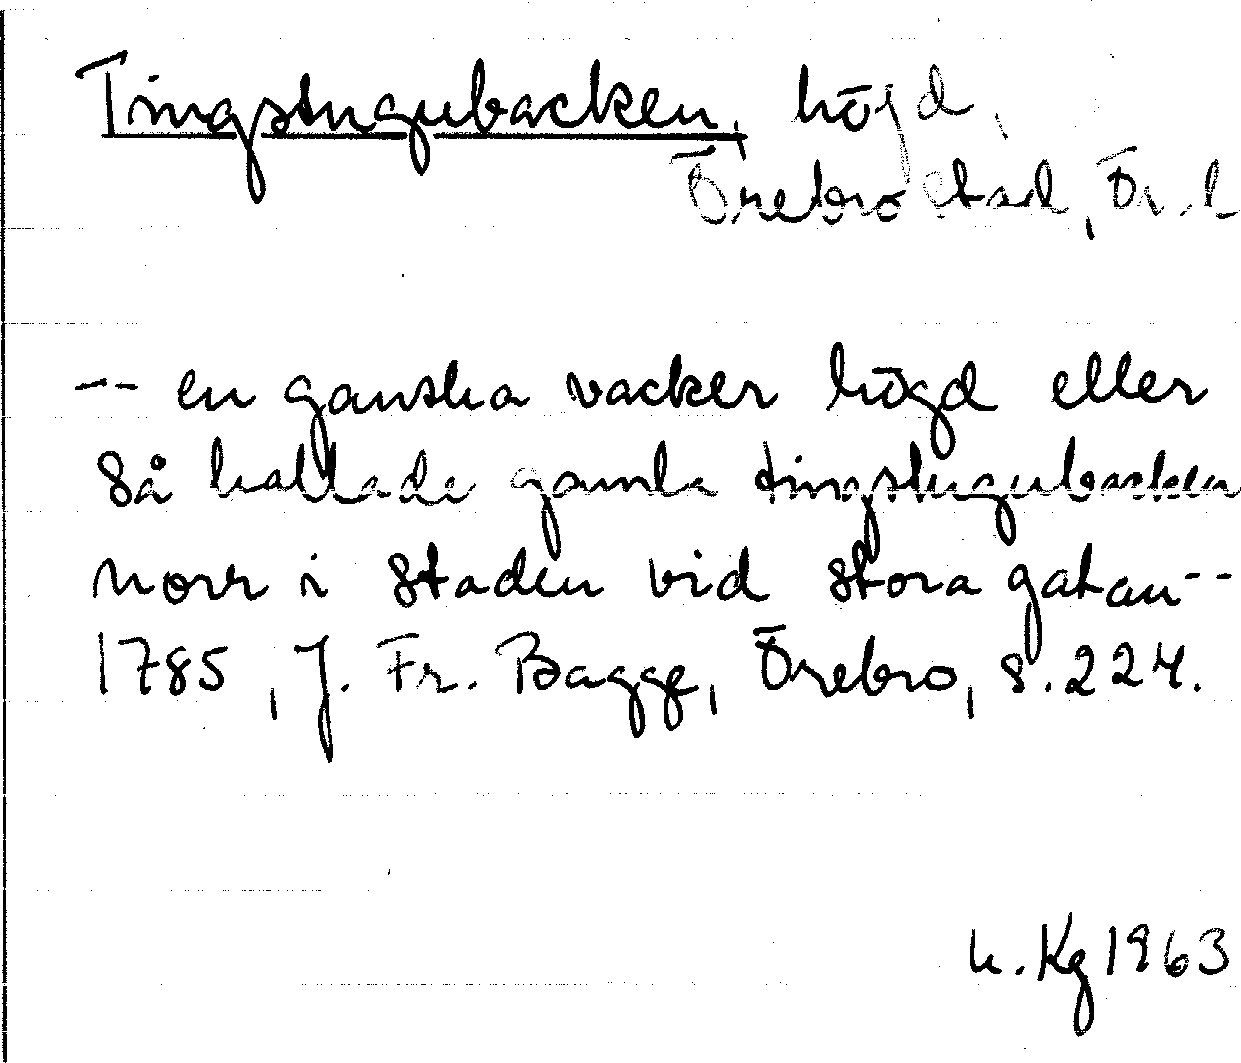 Tingstugubacken, höjd,
Örebro stad, Ör. l
-- en ganska vacker högd eller
så kallade gamla tingstugubacken
norr i staden vid stora gatan --
1785, J. Fr. Bagge, Örebro, s. 224.
h. Kg 1963